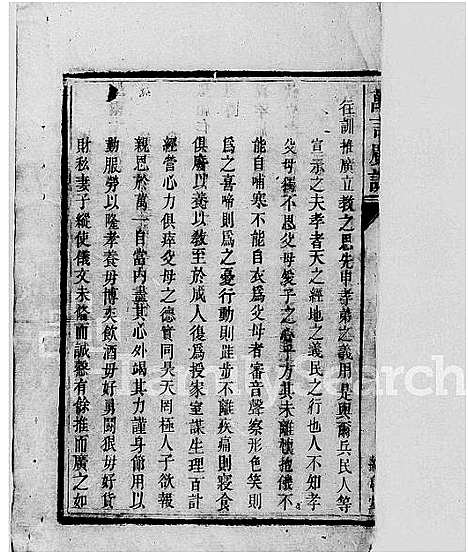 往訓推廣立教之思先申孝弟之義用是與爾兵民人等
宣示之夫孝者天之經地之義民之行也人不知孝
父母獨不思父母愛子之心乎方其未離懷抱饑不
能自哺寒不能自衣為父母者審音聲察形色笑則
為之喜啼則為之憂行動則跬步不離疾痛則寢食
俱廢以養以教至於成人復為授家室謀生理百計
經營心力俱瘁父母之德實同昊天罔極人子欲報
親恩於萬一自當內盡其心外竭其力謹身節用以
勤服勞以隆孝養毋博奕飲酒毋好勇鬬狠毋好貨
財私妻子縱使儀文未備而誠愨有餘推而廣之如